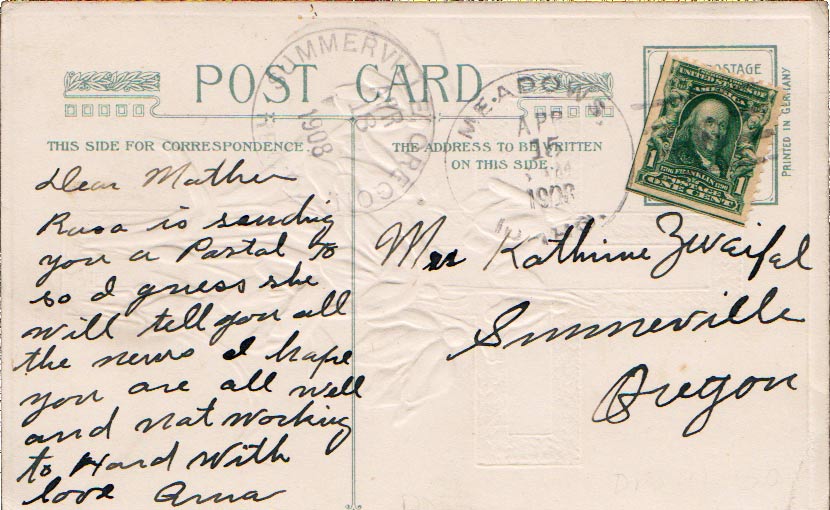 POST CARD
THIS SIDE FOR CORRESPONDENCE.
THE ADDRESS TO BE WRITTEN
ON THIS SIDE.
POSTAGE
PRINTED IN GERMANY
SUMMERVILLE OREGON
APR
18
1908
REC'D
MEADOWS
APR
15
1908
IDAHO.
UNITED STATES OF
AMERICA
1 FRANKLIN 1
POSTAGE
ONE CENT
Dear Mother
Rosa is sending
you a Postal to
so I guess she
will tell you all
the news I hope
you are all well
and not working
to Hard with
love Anna
Mrs Kathrine Zweifel
Summerville
Oregon